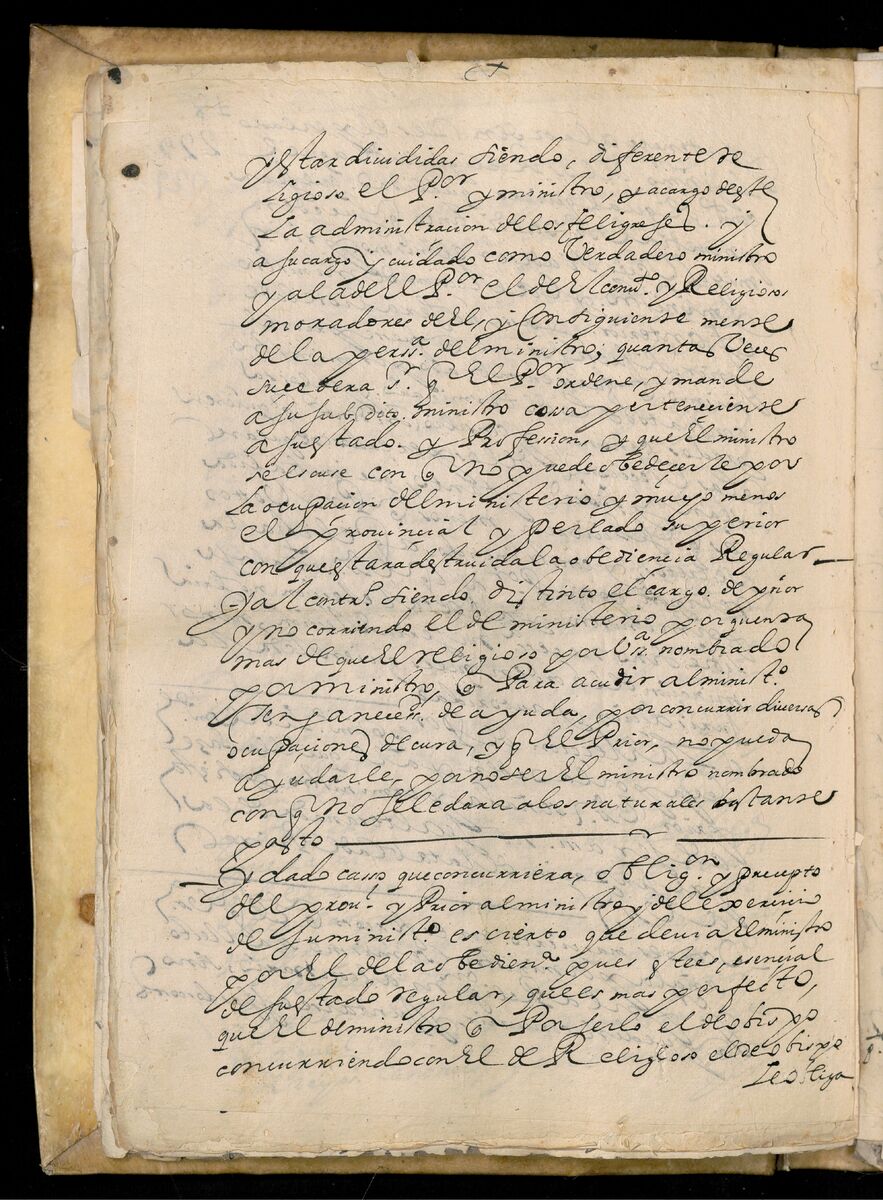 y estar divididas siendo, diferente re
ligioso el P.or y ministro, y a cargo deste
La administracion delos feligreses. y
a su cargo y cuidado como Verdadero ministro
y al a del P.or el del conv.to y Religiosos
moradores del, y Consiguiente mente
de la perss.a del ministro; quantas Veces
sucedera s.r q El P.or ordene, y mande
a su subdito ministro cossa perteneciente
a su estado. y Profession, y que El ministro
se escuse con q No puede obedeçerle por
La ocupacion del ministerio y muyo menos
el provincial y perlado superior
con que estará destruida La obediencia Regular
y al contr.o siendo distinto el cargo de prior
y no corriendo el de ministerio por quenta
mas de que El religioso por Vss.a nombrado
por ministro, q Para acudir al minist.o
tenga neced. de ayuda, por concurrir diversas
ocupaciones de cura, y q El Prior, no pueda
ayudarle, por no ser El ministro nombrado
con q No se le dara a los naturales bastante
pasto
Y dado casso que concurriera, oblig.on y precepto
del prou.l y Prior al ministro y del exercicio
de su minist.o es cierto que devia El ministro
por El de la obedien.a pues este es, esencial
de su estado regular, que es mas perfecto,
que El de ministro q Por serlo el de obispo
concurriendo con El de Religioso el de obispo
Le obliga